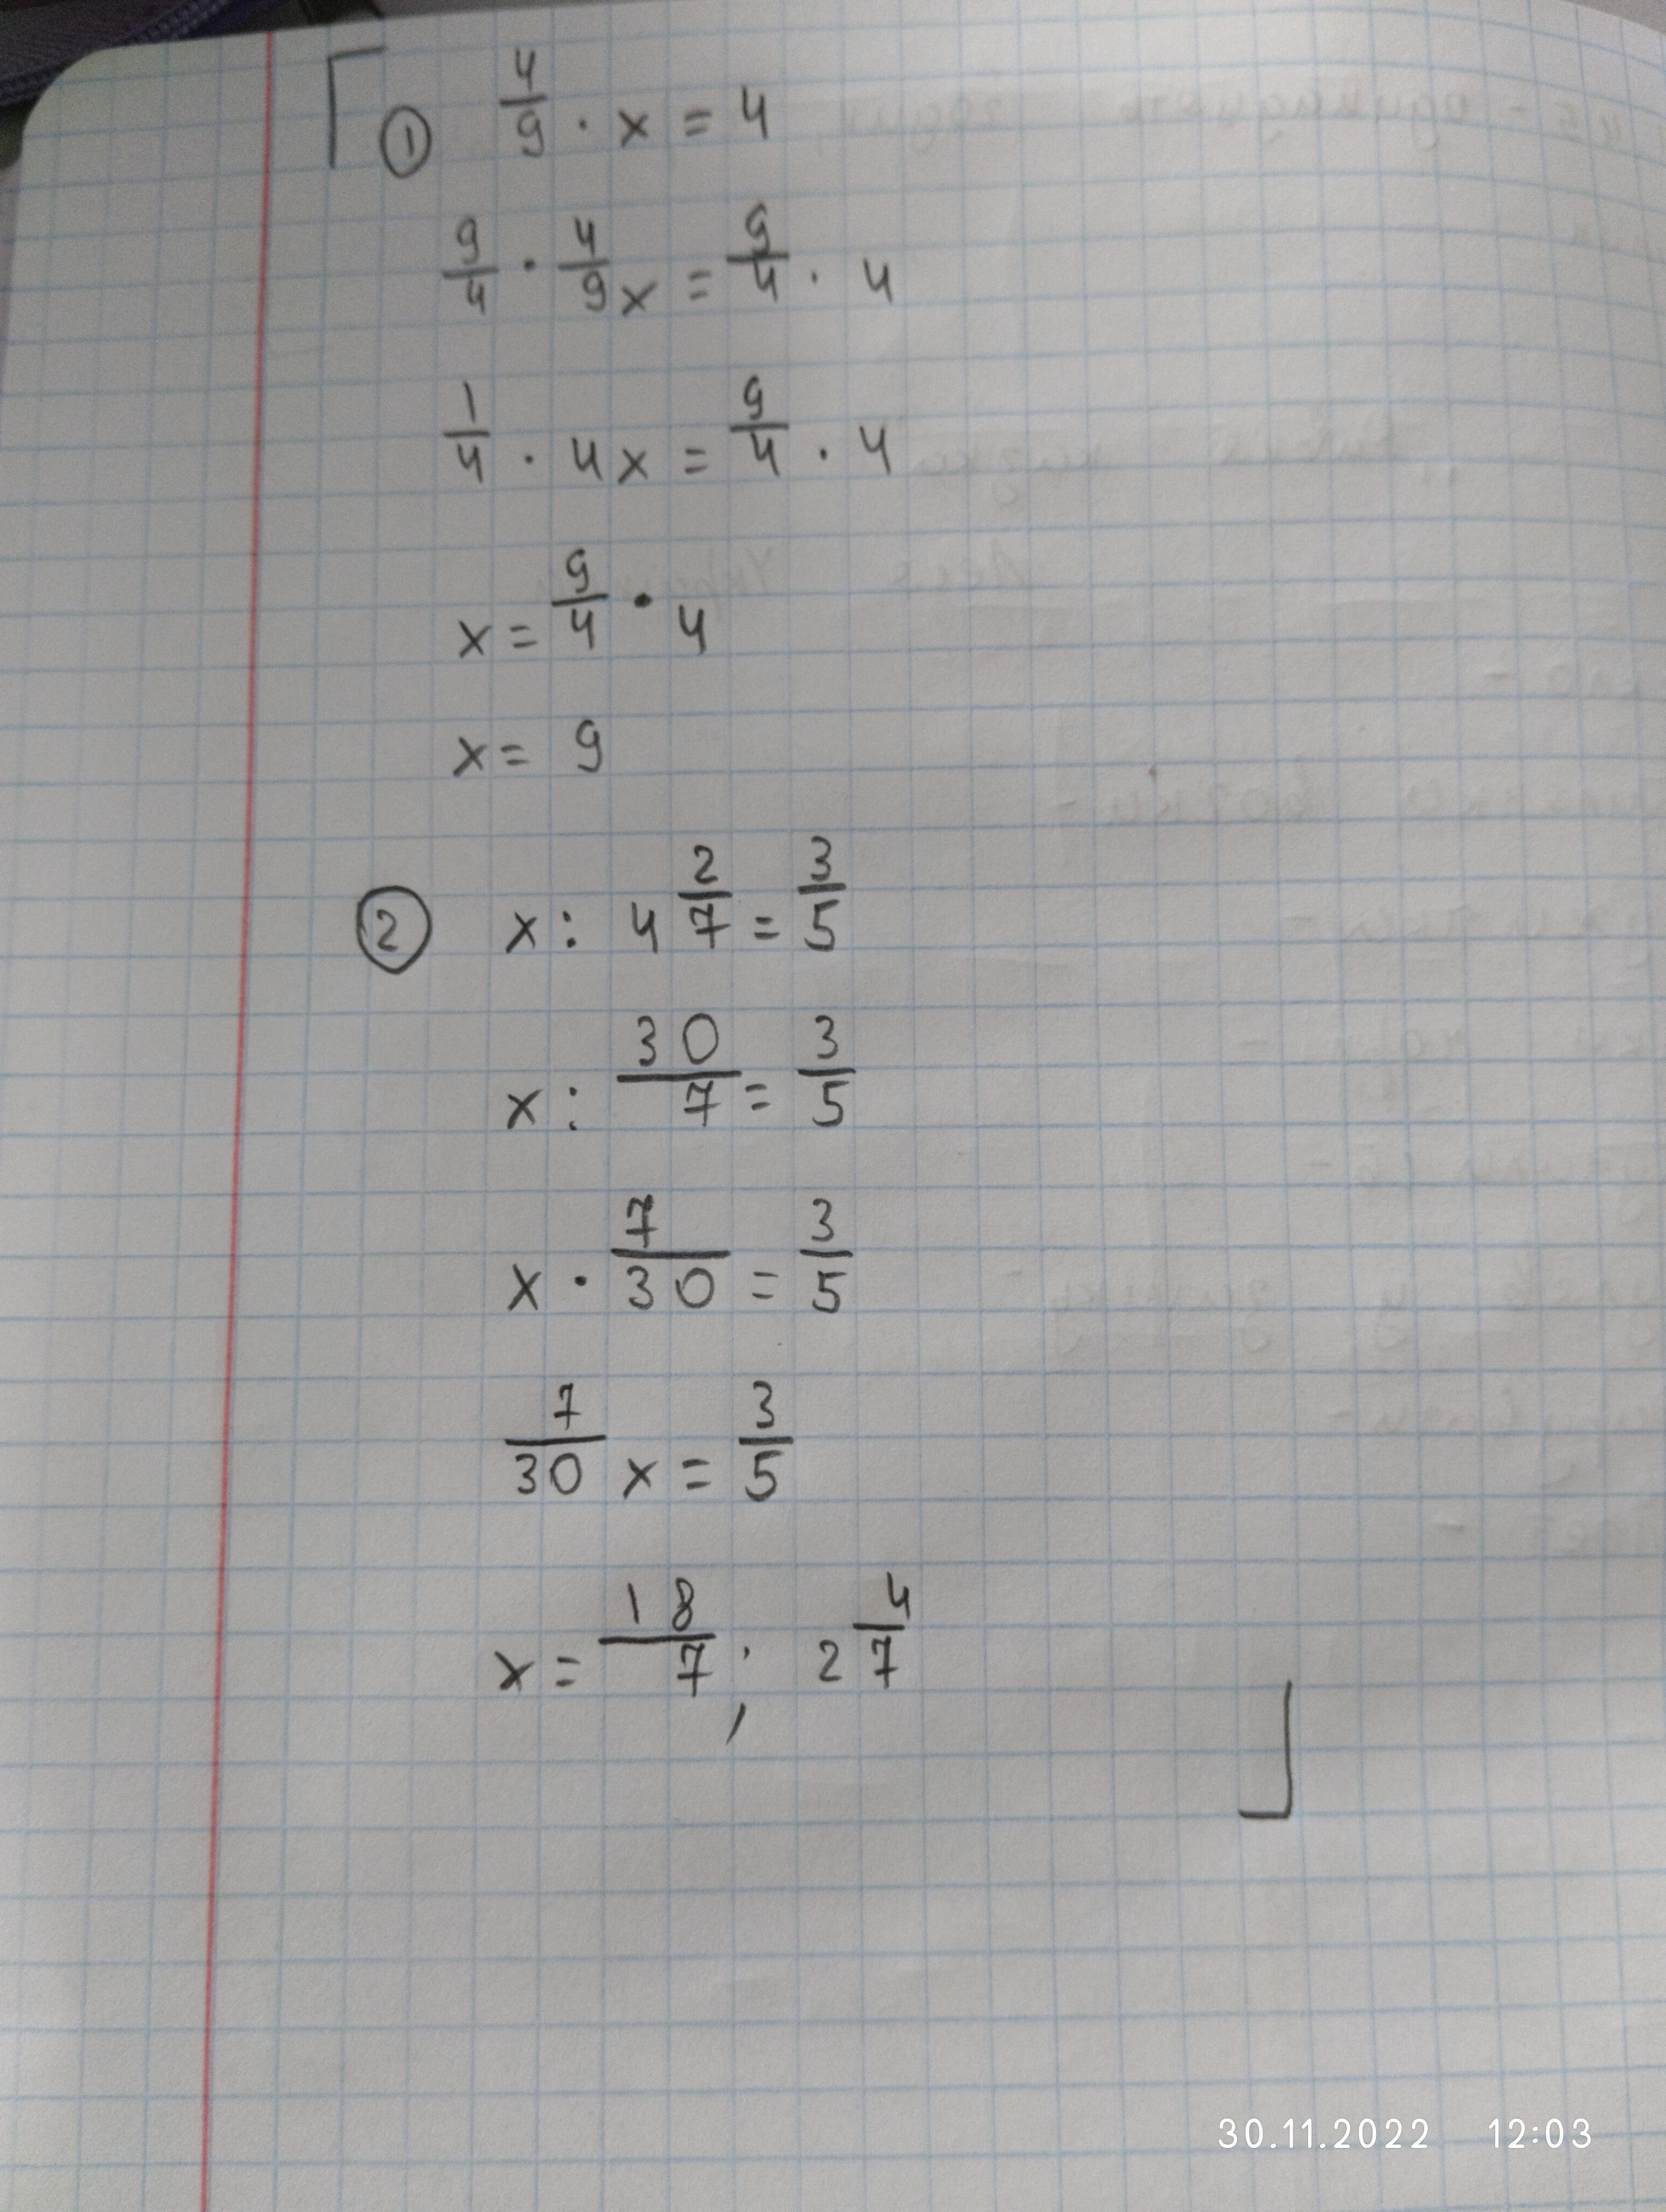 ① 4/9 · x = 4
9/4 · 4/9 x = 9/4 · 4
1/4 · 4x = 9/4 · 4
x = 9/4 · 4
x = 9
② x : 4 2/7 = 3/5
x : 30/7 = 3/5
x · 7/30 = 3/5
7/30 x = 3/5
x = 18/7 ; 2 4/7
30.11.2022 12:03